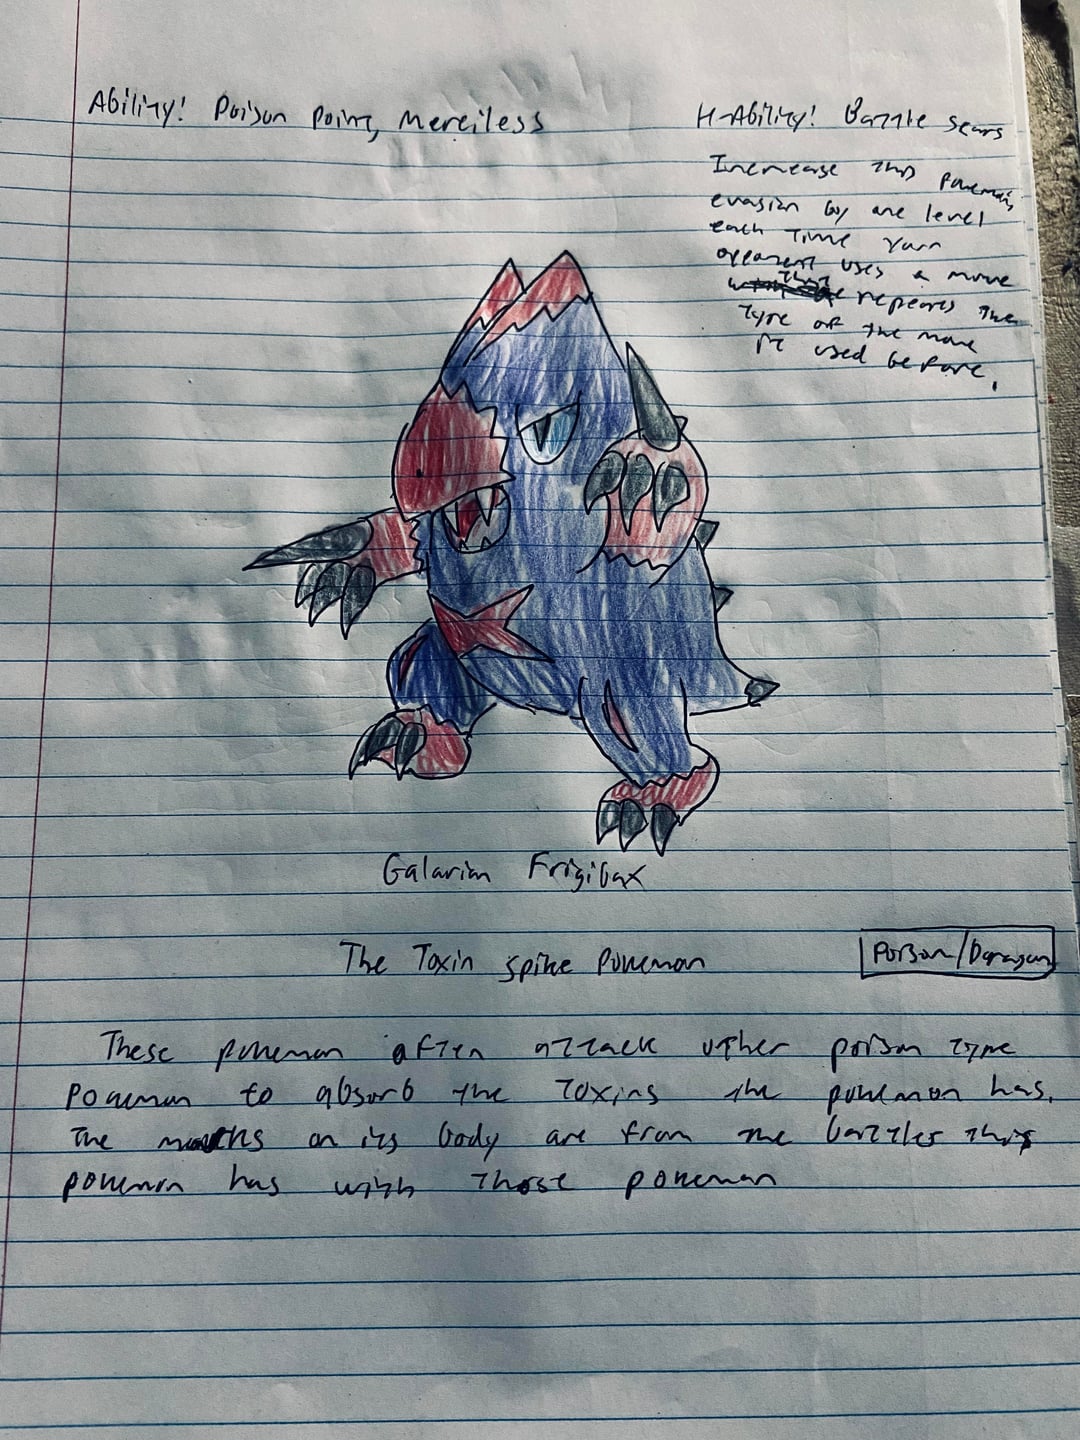 Ability! Poison point, Merciless
H-Ability! Battle scars
Increase this pokemon's
evasion by one level
each time your
opponent uses a move
that repeats the
type of the move
it used before.
Galarian Frigibax
The Toxin spike pokemon
Poison/Daragon
These pokemon often attack other poison type
pokemon to absorb the toxins the pokemon has.
The marks on its body are from the battles this
pokemon has with those pokemon